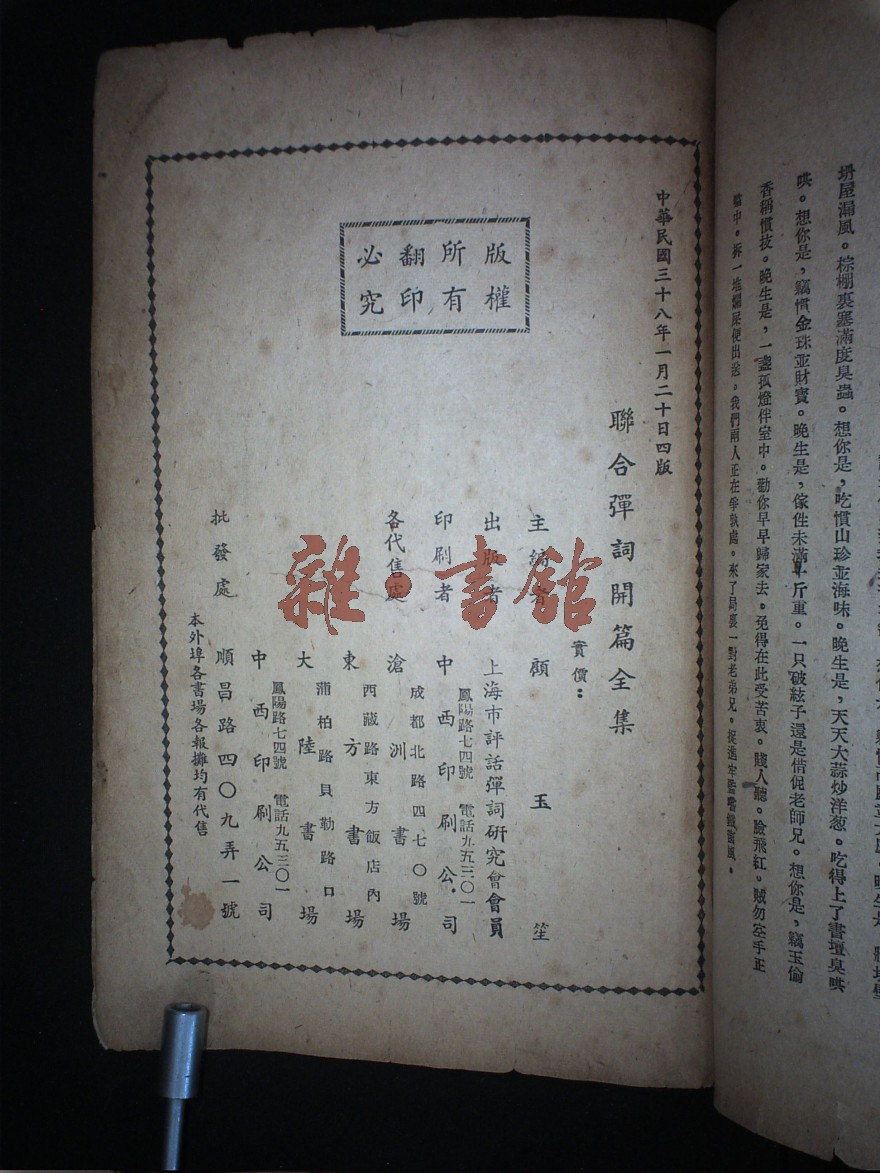 坍屋漏風。棕棚裏塞滿度臭蟲。想你是，吃慣山珍並海味。晚生是，天天大蒜炒洋葱。吃得上了書壇臭哄
哄。想你是，竊慣金珠並財寶。晚生是，傢性未滿半斤重。一只破絃子還是借促老師兄。想你是，竊玉偷
香稱慣技。晚生是，一盞孤燈伴室中。勸你早早歸家去。免得在此受苦衷。賤人聽。臉飛紅。賊勿空手正
我們兩人正在爭執處。來了局裏一對老弟兄。
中華民國三十八年一月二十日四版
版權
所有
翻印
必究
聯合彈詞開篇全集
實價：
主編者 顧玉笙
出版者 上海市評話彈詞研究會會員
印刷者 中西印刷公司
鳳陽路七四號 電話九五三〇一
各代售處 滄洲書場
成都北路四七〇號
東方書場
西藏路東方飯店內
大陸書場
蒲柏路貝勒路口
中西印刷公司
鳳陽路七四號 電話九五三〇一
批發處 順昌路四〇九弄一號
本外埠各書場各報攤均有代售
雜·書館